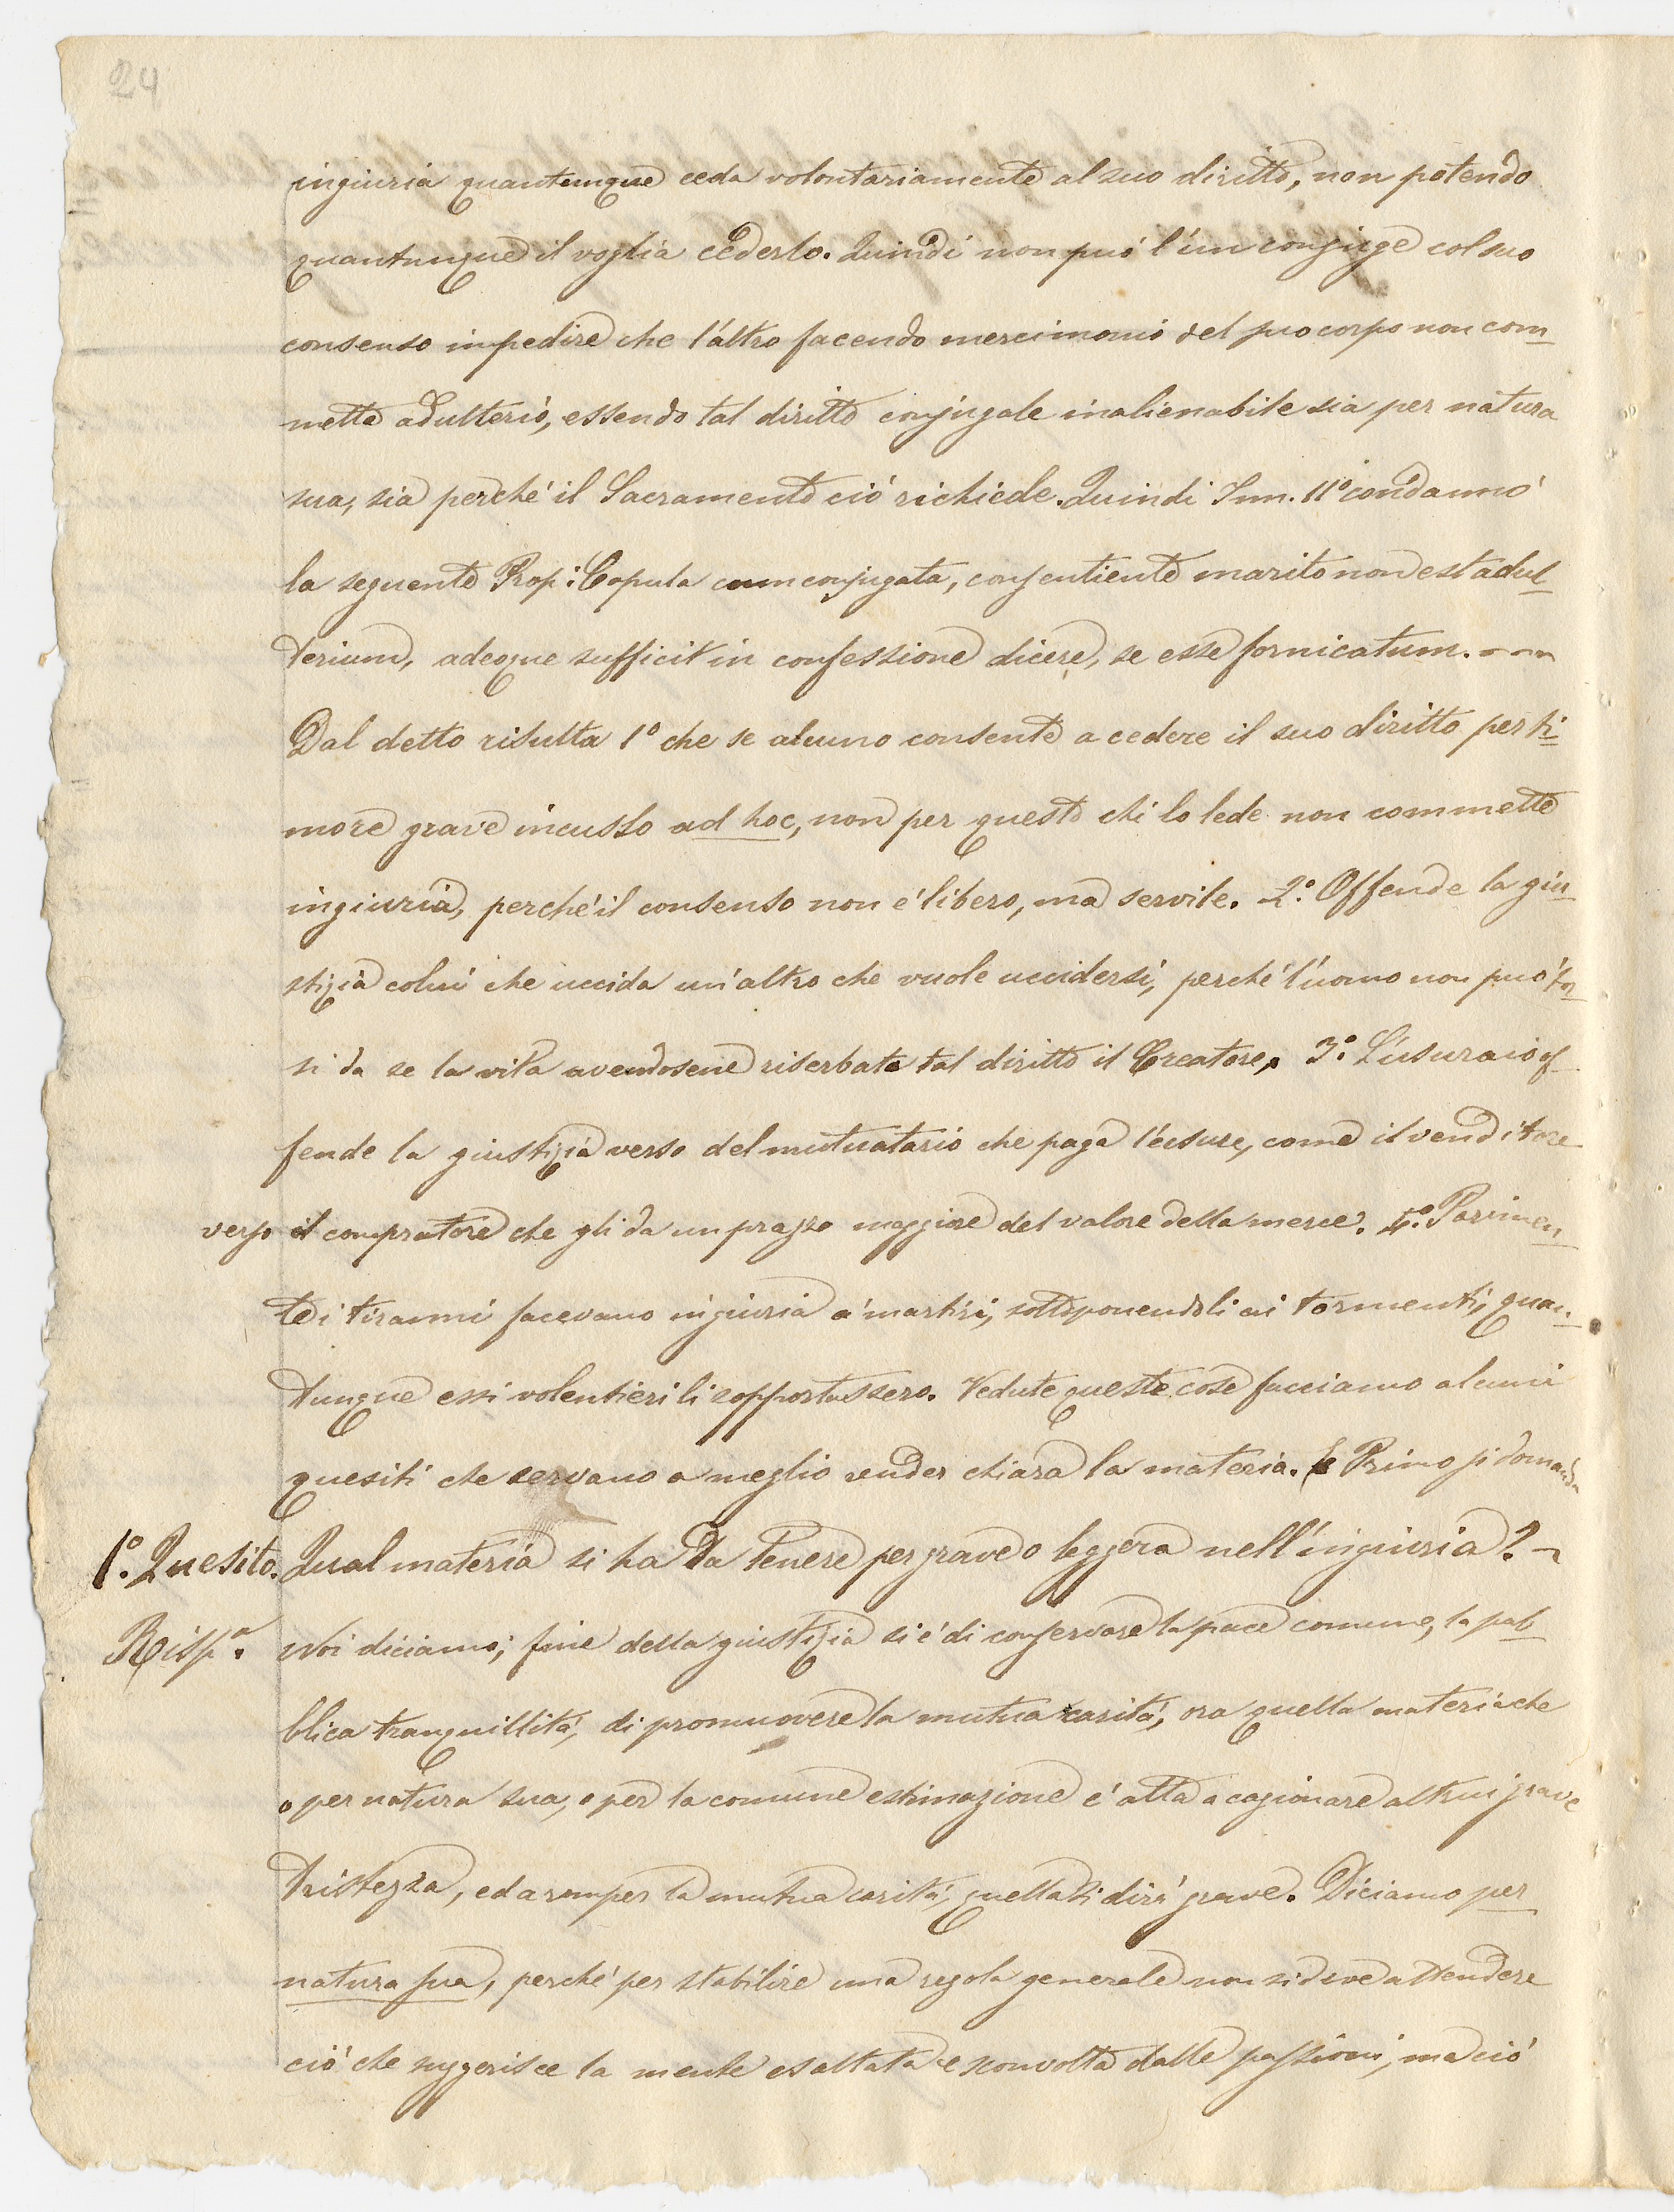 24
ingiuria quantunque ceda volontariamente al suo diritto, non potendo
quantunque il voglia cederlo. Quindi non puó l'un conjuge col suo
consenso impedire che l'altro facendo mercimonio del suo corpo non com
metta adulterio, essendo tal diritto conjugale inalienabile sia per natura
sua, sia perché il Sacramento ció richiede. Quindi Inn. 11º condannó
la seguente Prop: Copula cum conjugata, consentiente marito non est adul
terium, adeoque sufficit in confessione dicere, se esse fornicatum.
Dal detto risulta 1º che se alcuno consente a cedere il suo diritto per ti
more grave incusso ad hoc, non per questo chi lo lede non commette
ingiuria, perché il consenso non é libero, ma servile. 2º. Offende la giu
stizia colui che uccida un'altro che vuole uccidersi, perché l'uomo non puó tor
si da se la vita avendosene riserbato tal diritto il Creatore. 3º. L'usuraio of
fende la giustizia verso del mutuatario che paga l'usure, come il venditore
verso il compratore che gli da un prazzo maggiore del valore della merce. 4º. Parimen
te i tiranni facevano ingiuria a' martiri, sottoponendoli ai tormenti, quan
tunque essi volentieri li sopportassero. Vedute queste cose facciamo alcuni
quesiti che servano a meglio render chiara la materia. Primo si domanda
1º. Quesito. Qual materia si ha da tenere per grave o leggera nell'ingiuria?
Rispª. Noi diciamo; fine della giustizia si é di conservare la pace comune, la pub
blica tranquillitá, di promuovere la mutua caritá, ora quella materia che
o per natura sua, o per la comune estimazione é atta a cagionare altrui grave
tristezza, ed a romper la mutua caritá, quella si dirá grave. Diciamo per
natura sua, perché per stabilire una regola generale non si deve attendere
ció che suggerisce la mente esaltata e sconvolta dalle passioni, ma ció